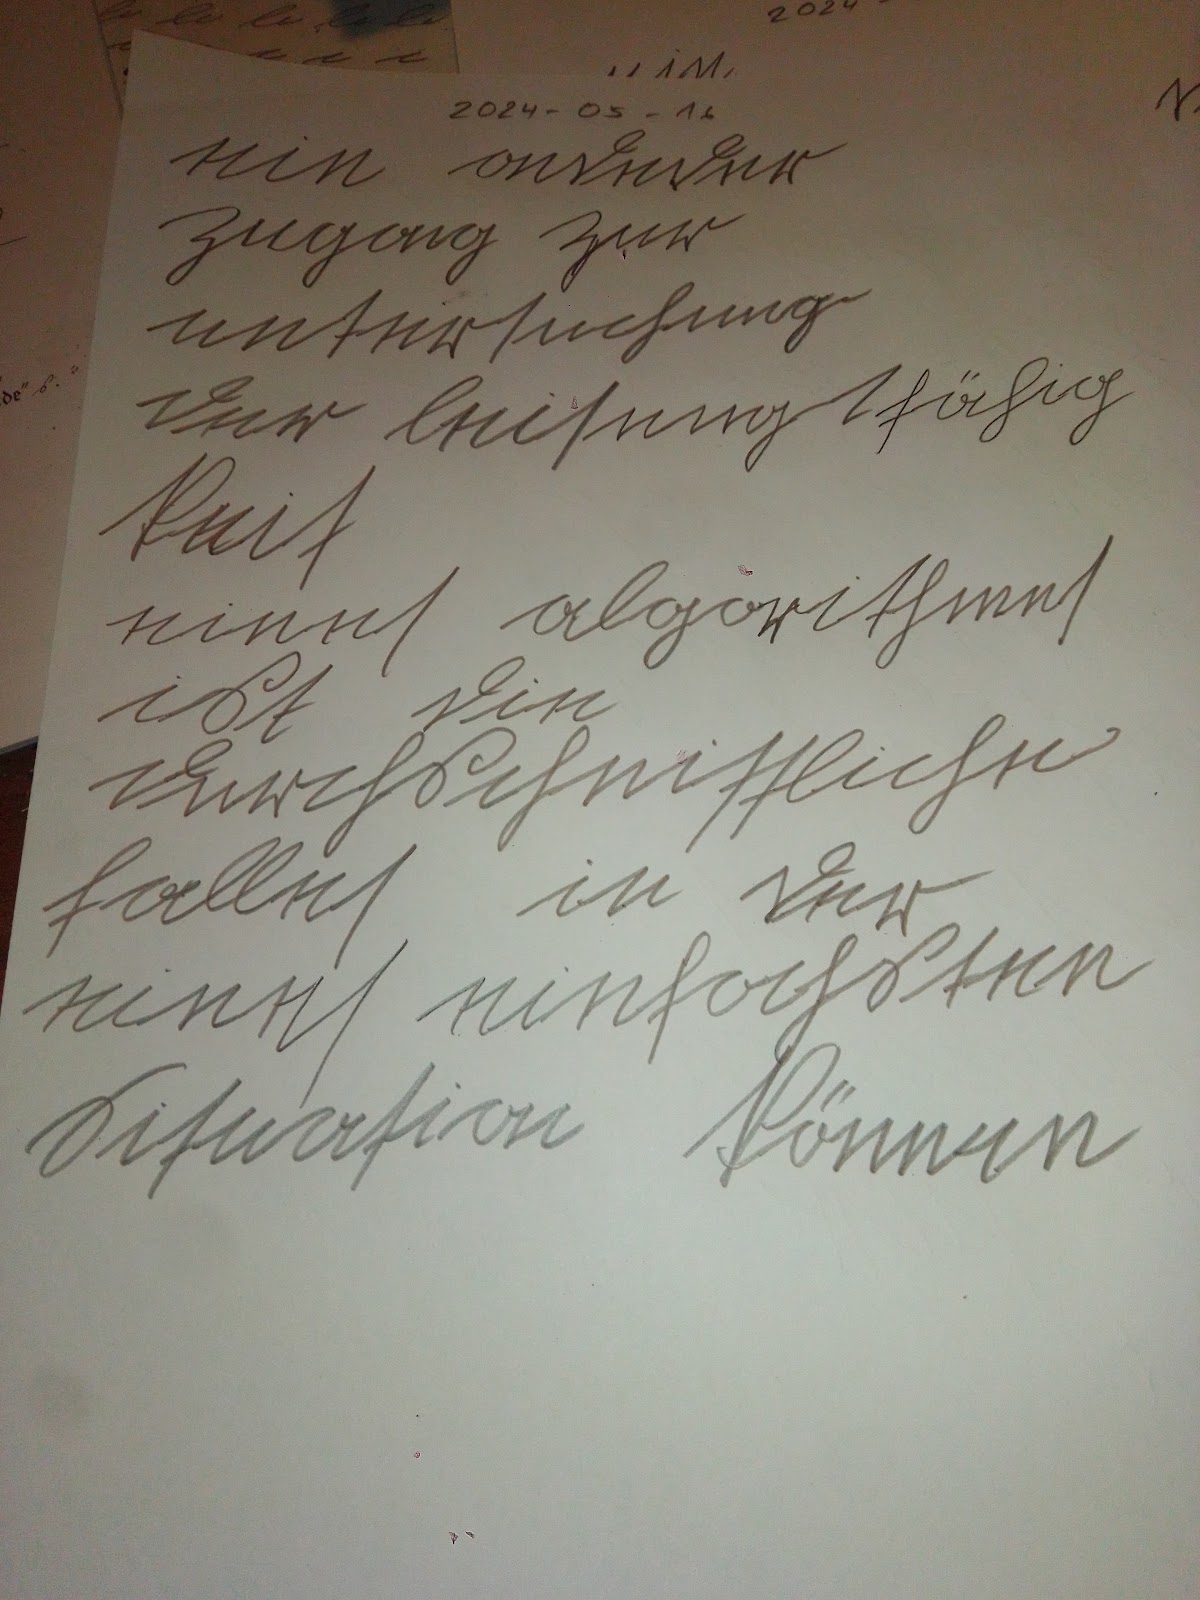 2024-
" IM.
2024-05-16
ein anderer
zugang zur
untersuchung
der leisungsfähig
keit
eines algorithmes
ist die
durchschnittliche
falles in der
eines einfachsten
situation können